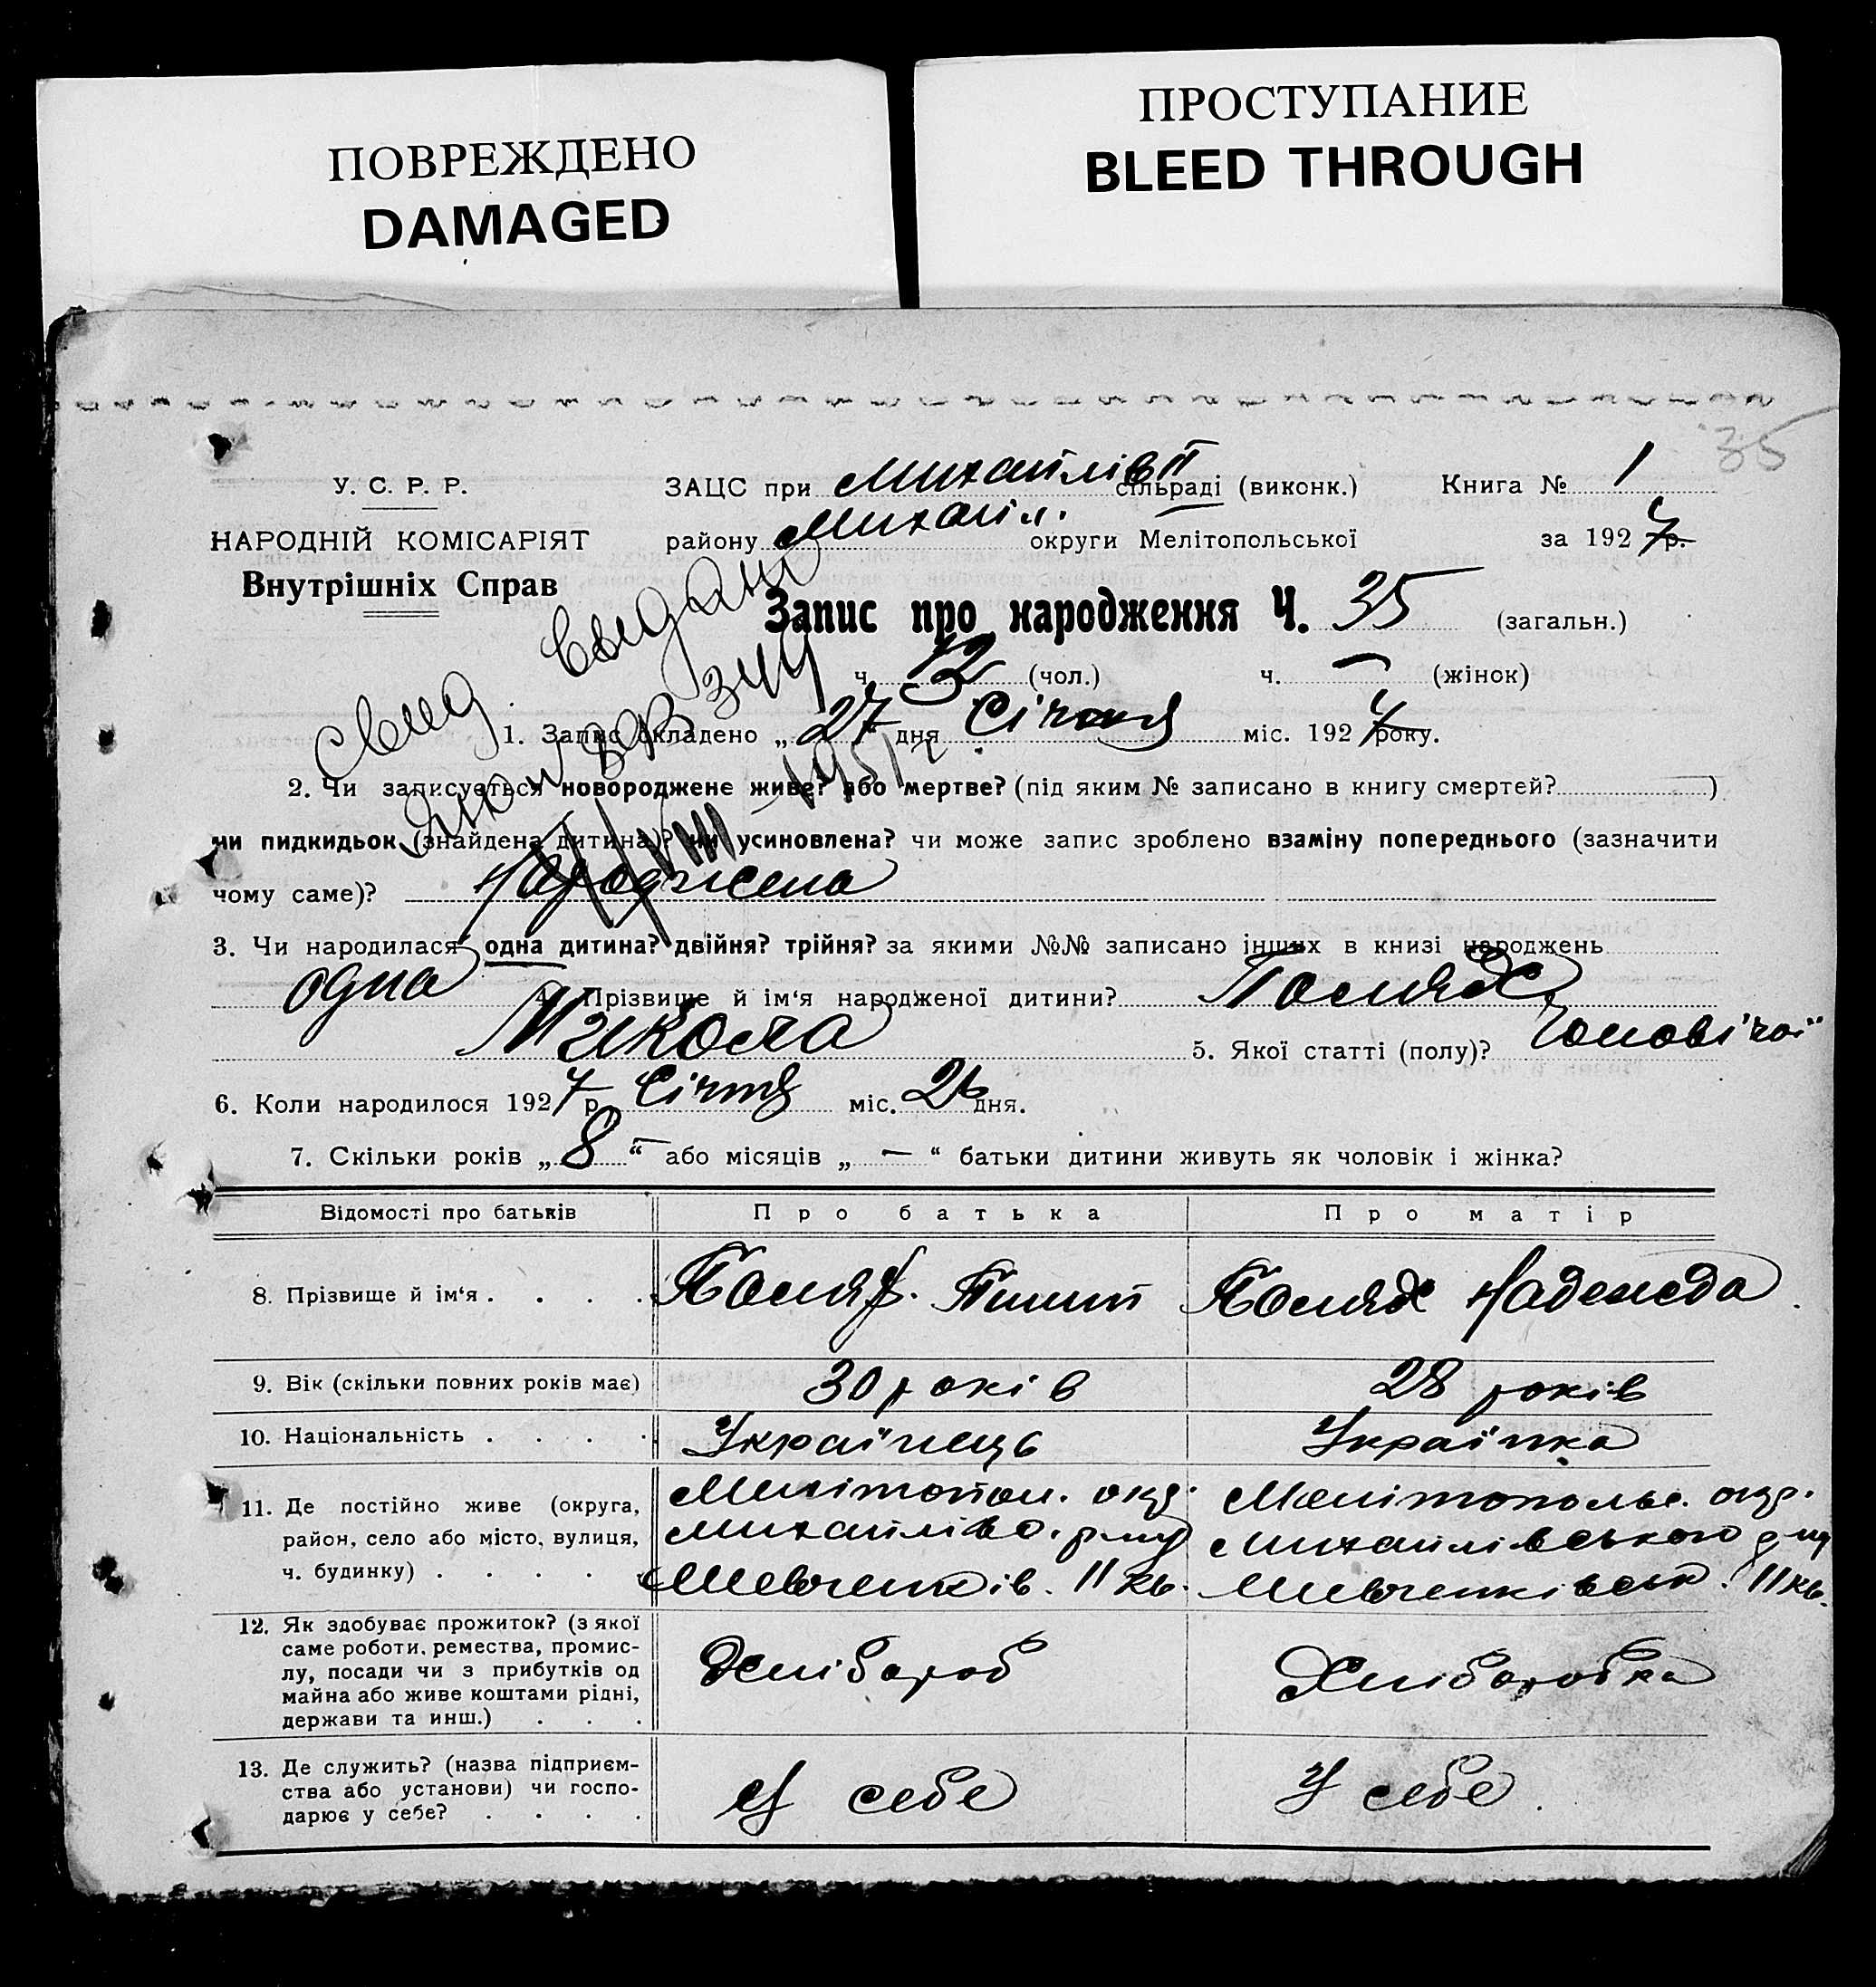 ПОВРЕЖДЕНО
DAMAGED
ПРОСТУПАНИЕ
BLEED THROUGH
35
У. С. Р. Р.
НАРОДНІЙ КОМІСАРІЯТ
Внутрішніх Справ
ЗАЦС при Михайлів II сільраді (виконк.) Книга № 1
району Михайл. округи Мелітопольської за 1927 р.
Запис про народження Ч. 35 (загальн.)
ч. (чол.) ч. — (жінок)
1. Запис складено „27“ дня Січня міс. 1927 року.
2. Чи записується новороджене живе? або мертве? (під яким № записано в книгу смертей? )
чи пидкидьок (знайдена дитина)? чи усиновлена? чи може запис зроблено взаміну попереднього (зазначити
чому саме)? Народжена
3. Чи народилася одна дитина? двійня? трійня? за якими №№ записано інших в книзі народжень
одна 4. Прізвище й ім‘я народженої дитини?
Микола 5. Якої статті (полу)? Чоловічої
6. Коли народилося 1927 р. Січня міс. 26 дня.
7. Скільки років „8“ або місяців „—“ батьки дитини живуть як чоловік і жінка?
Відомості про батьків Про батька Про матір
8. Прізвище й ім‘я . . . . Надежда
9. Вік (скільки повних років має) 30 років 28 років
10. Національність . . . . Українець Українка
11. Де постійно живе (округа, район, село або місто, вулиця, ч. будинку) . . . . .
Мелітопол. окр. Мелітопольс. окр.
Михайлівс. р-ну Михайлівського р-ну
Шевченків. II кв. Шевченківськ. II кв.
12. Як здобуває прожиток? (з якої
саме роботи, ремества, промис-
лу, посади чи з прибутків од
майна або живе коштами рідні,
держави та инш.) . . .
Хлібороб Хліборобка
13. Де служить? (назва підприєм-
ства або установи) чи госпо-
дарює у себе? . . . .
У себе У себе.
Свид. выдано
1951 г.